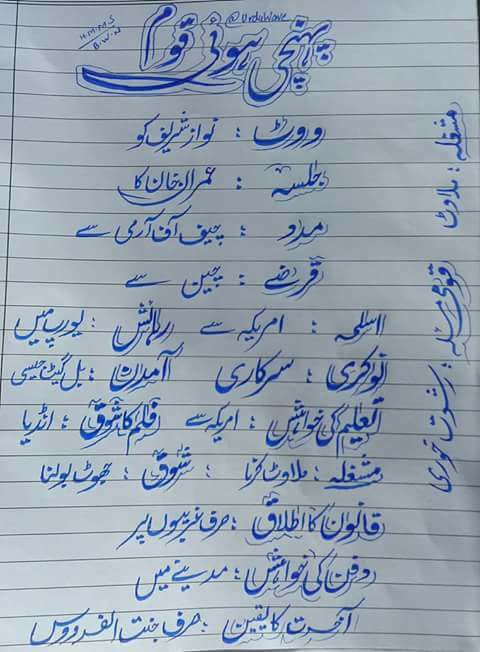 @UrduWave
H.M.M.S
B.W.N
پہنچی ہوئی قوم
ووٹ : نواز شریف کو
جلسہ : عمران خان کا
مدد : چیف آف آرمی سے
قرضے : چین سے
اسلحہ : امریکہ سے رہائش : یورپ میں
نوکری : سرکاری آمدن : بل گیٹ جیسی
تعلیم کی خواہش : امریکہ سے فلم کا شوق : انڈیا
مشغلہ : ملاوٹ کرنا شوق : جھوٹ بولنا
قانون کا اطلاق : صرف غریبوں پر
دفن کی خواہش : مدینے میں
آخرت کا یقین : صرف جنت الفردوس
مشغلہ : ملاوٹ
قومی مسئلہ : رشوت خوری